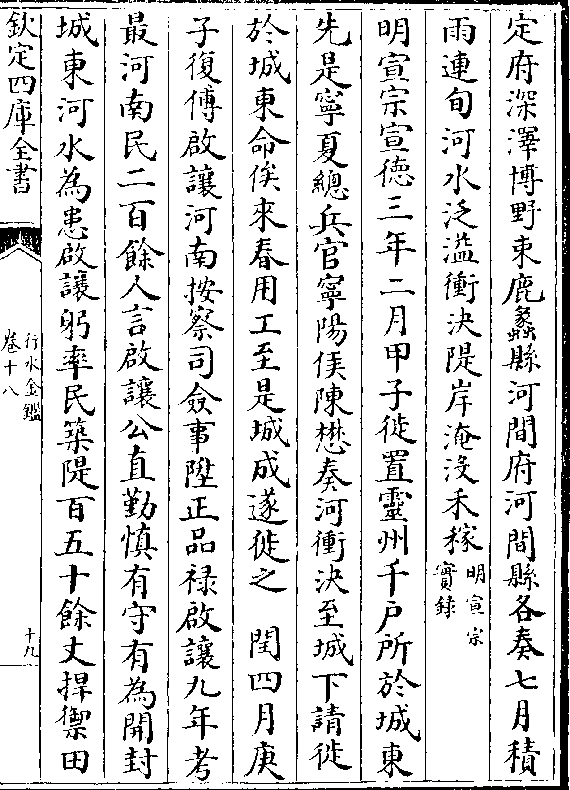 定府深澤博野束鹿蠡縣河間府河間縣各奏七月積
雨連旬河水泛溢衝決隄岸淹沒禾稼明宣宗實錄
明宣宗宣徳三年二月甲子徙置靈州千戸所於城東
先是寧夏總兵官寧陽侯陳懋奏河衝決至城下請徙
於城東命俟來春用工至是城成遂徙之 閏四月庚
子復傅啟讓河南按察司僉事陞正品禄啟讓九年考
最河南民二百餘人言啟讓公直勤慎有守有為開封
城東河水為患啟讓躬率民築隄百五十餘丈捍禦田
欽定四庫全書
行水金鑑
卷十八
十九